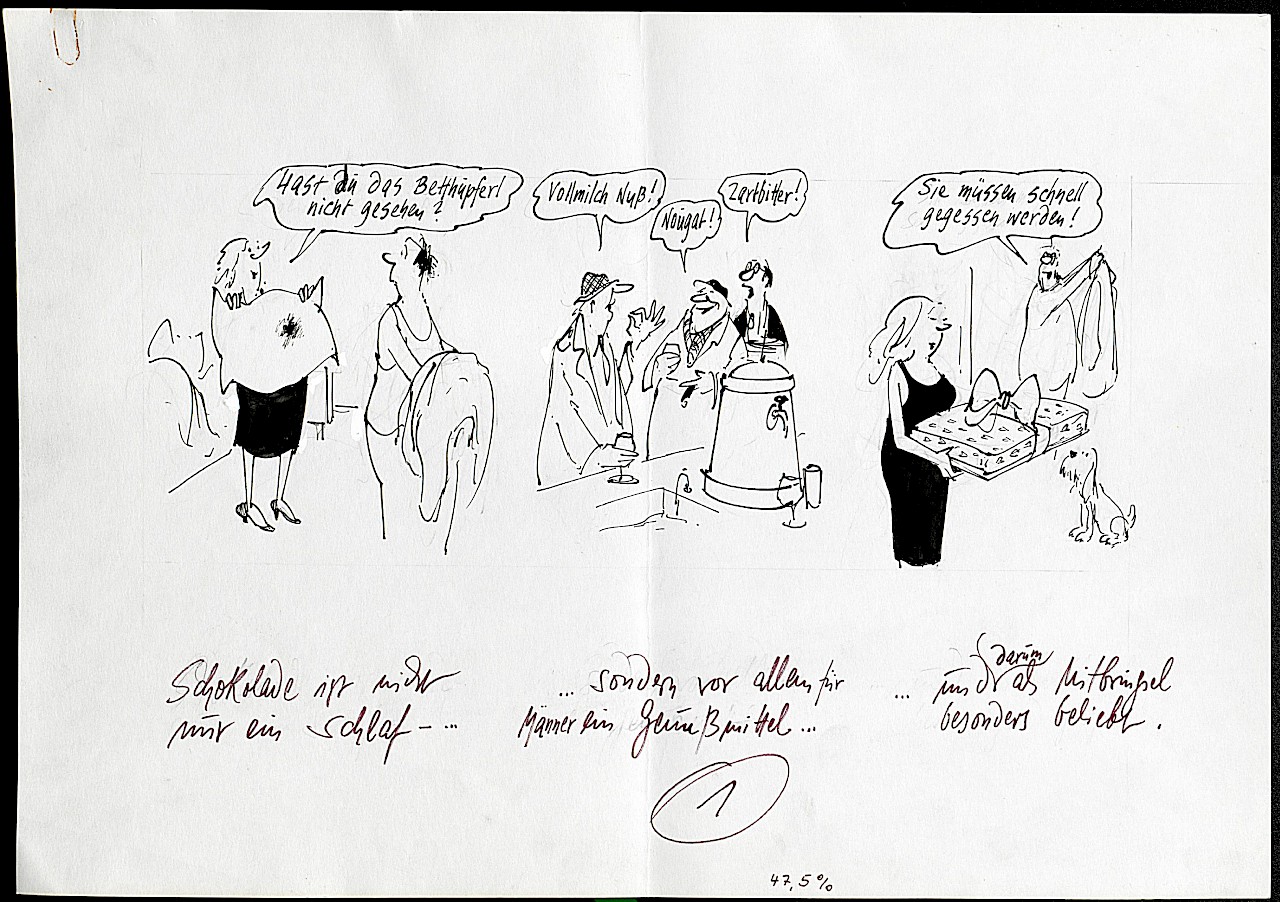 Hast du das Betthüpferl
nicht gesehen?
Vollmilch Nuß!
Nougat!
Zartbitter!
Sie müssen schnell
gegessen werden!
Schokolade ist nicht
nur ein Schlaf- ...
... sondern vor allem für
Männer ein Genußmittel ...
darum
... und als Mitbringsel
besonders beliebt.
1
47,5%